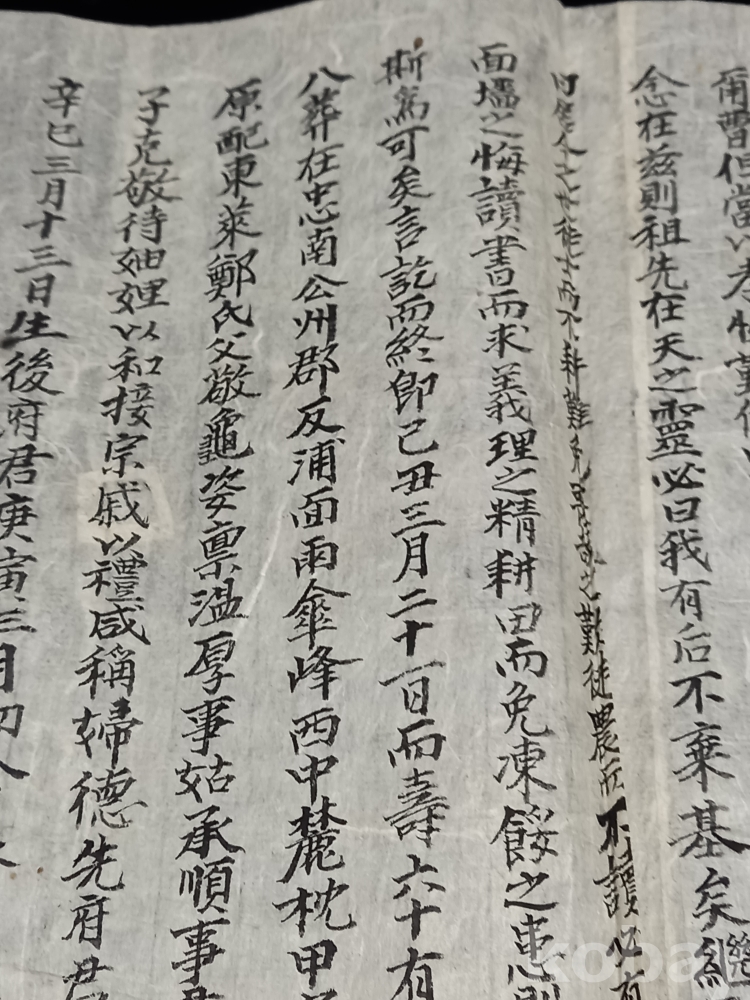 爾曹但當以孝悌勤儉
念在玆則祖先在天之靈必曰我有后不棄基矣繼
而不耕難免 之難徒農而不讀必有
面墻之悔讀書而求義理之精耕田而免凍餒之患則
斯爲可矣言訖而終卽己丑三月二十一日而壽六十有
八葬在忠南公州郡反浦面雨傘峰西中麓枕甲
原配東萊鄭氏父敬龜姿禀溫厚事姑承順事君
子克敬待妯娌以和接宗戚以禮咸稱婦德先府君
辛巳三月十三日生後府君庚寅三月初八
koba